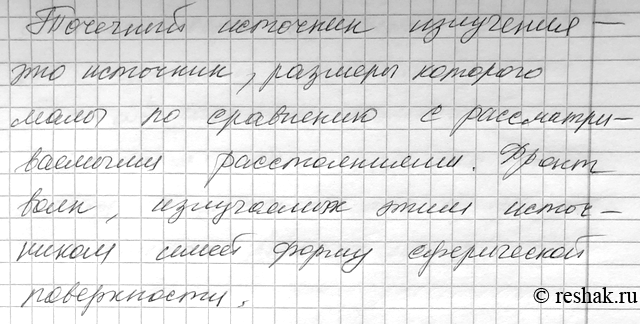 Точечный источник излучения –
это источник, размеры которого
малы по сравнению с рассматри-
ваемыми расстояниями. Фронт
волн, излучаемых этим источ-
ником имеет форму сферической
поверхности.
© reshak.ru